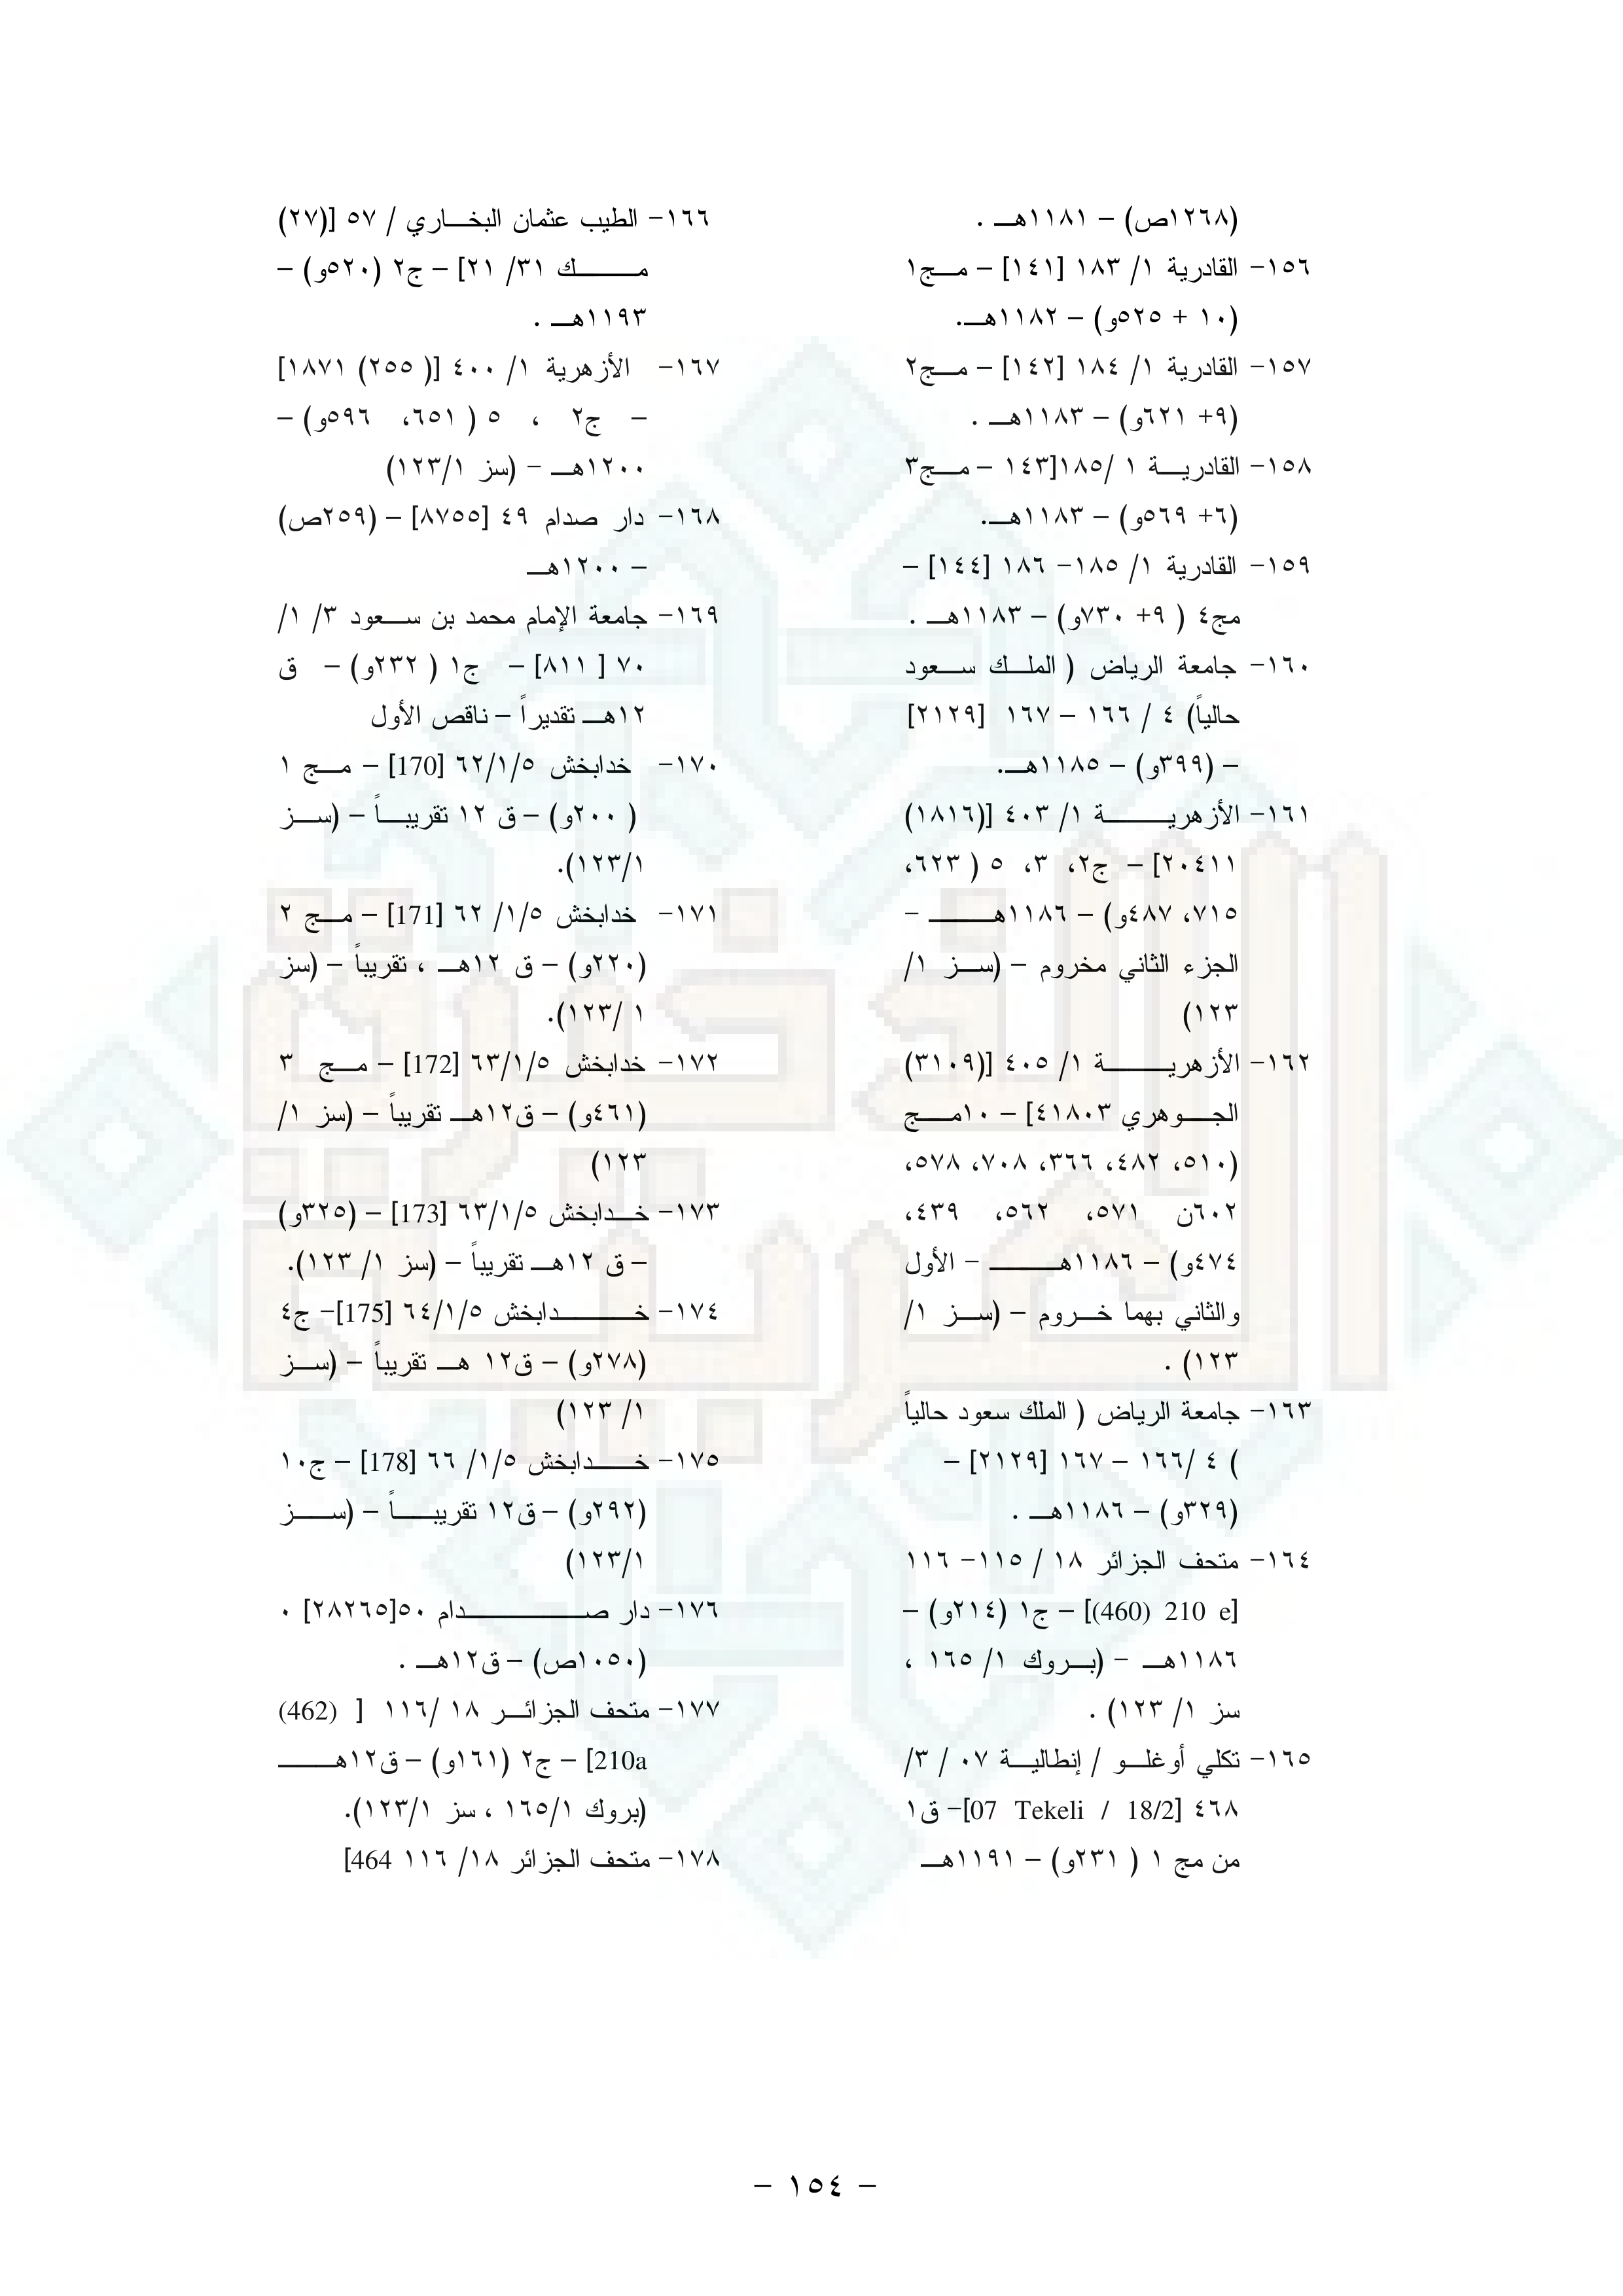 (١٢٦٨ص) – ١١٨١هـ .
١٥٦- القادرية ١/ ١٨٣ [١٤١] – مج١
(١٠ + ٥٢٥و) – ١١٨٢هـ.
١٥٧- القادرية ١/ ١٨٤ [١٤٢] – مج٢
(٩+ ٦٢١و) – ١١٨٣هـ .
١٥٨- القادرية ١ /١٨٥[١٤٣ – مج٣
(٦+ ٥٦٩و) – ١١٨٣هـ.
١٥٩- القادرية ١/ ١٨٥- ١٨٦ [١٤٤] –
مج٤ ( ٩+ ٧٣٠و) – ١١٨٣هـ .
١٦٠- جامعة الرياض ( الملك سعود
حالياً) ٤ / ١٦٦ – ١٦٧ [٢١٢٩]
– (٣٩٩و) – ١١٨٥هـ.
١٦١- الأزهرية ١/ ٤٠٣ [(١٨١٦)
٢٠٤١١] – ج٢، ٣، ٥ ( ٦٢٣،
٧١٥، ٤٨٧و) – ١١٨٦هـ -
الجزء الثاني مخروم – (سز ١/
١٢٣)
١٦٢- الأزهرية ١/ ٤٠٥ [(٣١٠٩)
الجوهري ٤١٨٠٣] – ١٠مج
(٥١٠، ٤٨٢، ٣٦٦، ٧٠٨، ٥٧٨،
٦٠٢ن ٥٧١، ٥٦٢، ٤٣٩،
٤٧٤و) – ١١٨٦هـ – الأول
والثاني بهما خروم – (سز ١/
١٢٣) .
١٦٣- جامعة الرياض ( الملك سعود حالياً
) ٤ /١٦٦ – ١٦٧ [٢١٢٩] –
(٣٢٩و) – ١١٨٦هـ .
١٦٤- متحف الجزائر ١٨ / ١١٥- ١١٦
[(460) 210 e] – ج١ (٢١٤و) –
١١٨٦هـ - (بروك ١/ ١٦٥ ،
سز ١/ ١٢٣) .
١٦٥- تكلي أوغلو / إنطالية ٠٧ / ٣/
٤٦٨ [07 Tekeli / 18/2]– ق١
من مج ١ ( ٢٣١و) – ١١٩١هـ
١٦٦- الطيب عثمان البخاري / ٥٧ [(٢٧)
مك ٣١/ ٢١] – ج٢ (٥٢٠و) –
١١٩٣هـ .
١٦٧- الأزهرية ١/ ٤٠٠ [( ٢٥٥) ١٨٧١]
– ج٢ ، ٥ ( ٦٥١، ٥٩٦و) –
١٢٠٠هـ - (سز ١٢٣/١)
١٦٨- دار صدام ٤٩ [٨٧٥٥] – (٢٥٩ص)
– ١٢٠٠هـ
١٦٩- جامعة الإمام محمد بن سعود ٣/ ١/
٧٠ [ ٨١١] – ج١ ( ٢٣٢و) – ق
١٢هـ تقديراً – ناقص الأول
١٧٠- خدابخش ٦٢/١/٥ [170] – مج ١
( ٢٠٠و) – ق ١٢ تقريباً – (سز
١٢٣/١).
١٧١- خدابخش ١/٥/ ٦٢ [171] – مج ٢
(٢٢٠و) – ق ١٢هـ ، تقريباً – (سز
١ /١٢٣).
١٧٢- خدابخش ٦٣/١/٥ [172] – مج ٣
(٤٦١و) – ق١٢هـ تقريباً – (سز ١/
١٢٣)
١٧٣- خدابخش ٦٣/١/٥ [173] – (٣٢٥و)
– ق ١٢هـ تقريباً – (سز ١/ ١٢٣).
١٧٤- خدابخش ٦٤/١/٥ [175]- ج٤
(٢٧٨و) – ق١٢ هـ تقريباً – (سز
١/ ١٢٣)
١٧٥- خدابخش ١/٥/ ٦٦ [178] – ج١٠
(٢٩٢و) – ق١٢ تقريباً – (سز
١٢٣/١)
١٧٦- دار صدام ٥٠[٢٨٢٦٥] ٠
(١٠٥٠ص) – ق١٢هـ .
١٧٧- متحف الجزائر ١٨ /١١٦ [ (462)
210a] – ج٢ (١٦١و) – ق١٢هـ
(بروك ١٦٥/١ ، سز ١٢٣/١).
١٧٨- متحف الجزائر ١٨/ ١١٦ 464]
- ١٥٤ -
الذخائر العربية